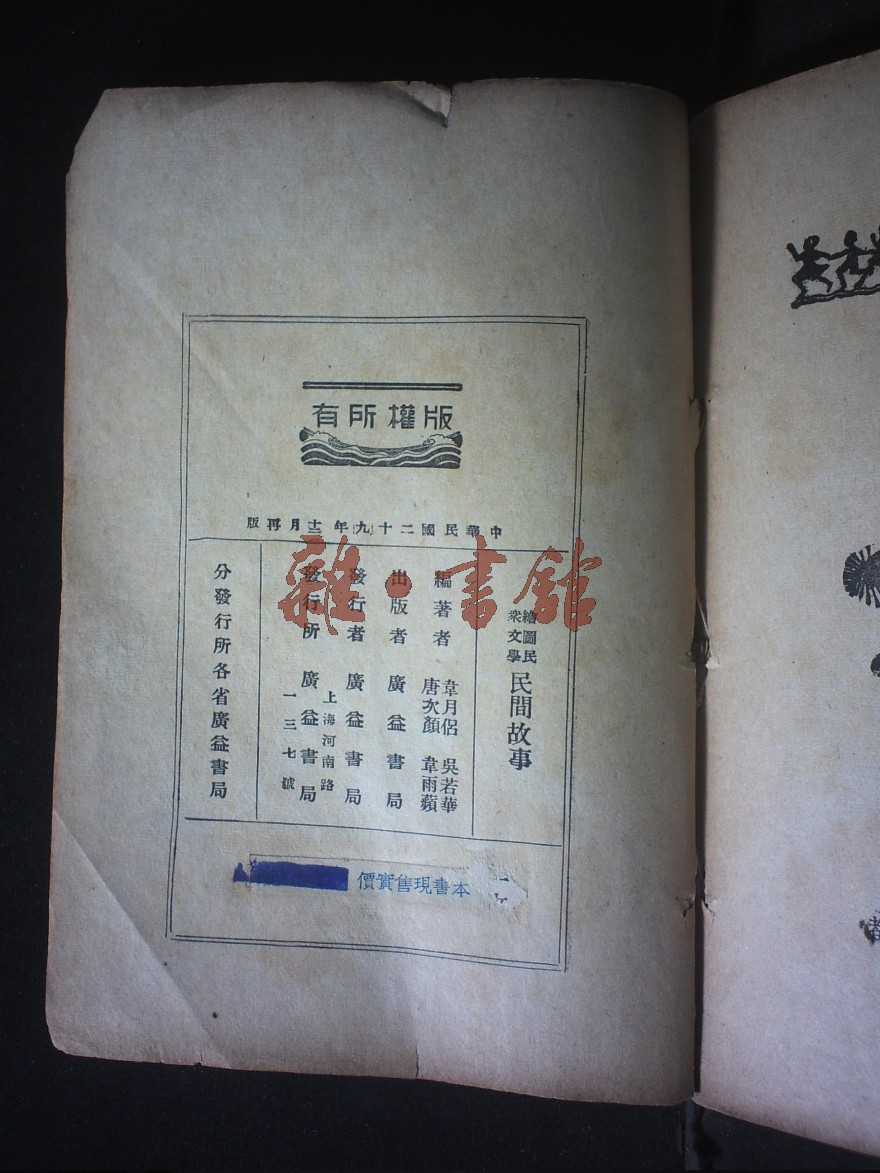 版權所有
中華民國二十九年十二月再版
繪圖民
衆文學
民間故事
編著者
韋月侶 吳若華
唐次顏 韋雨蘋
出版者 廣益書局
發行者 廣益書局
發行所 廣益書局
上海河南路
一三七號
分發行所各省廣益書局
本書現售實價
雜·書館